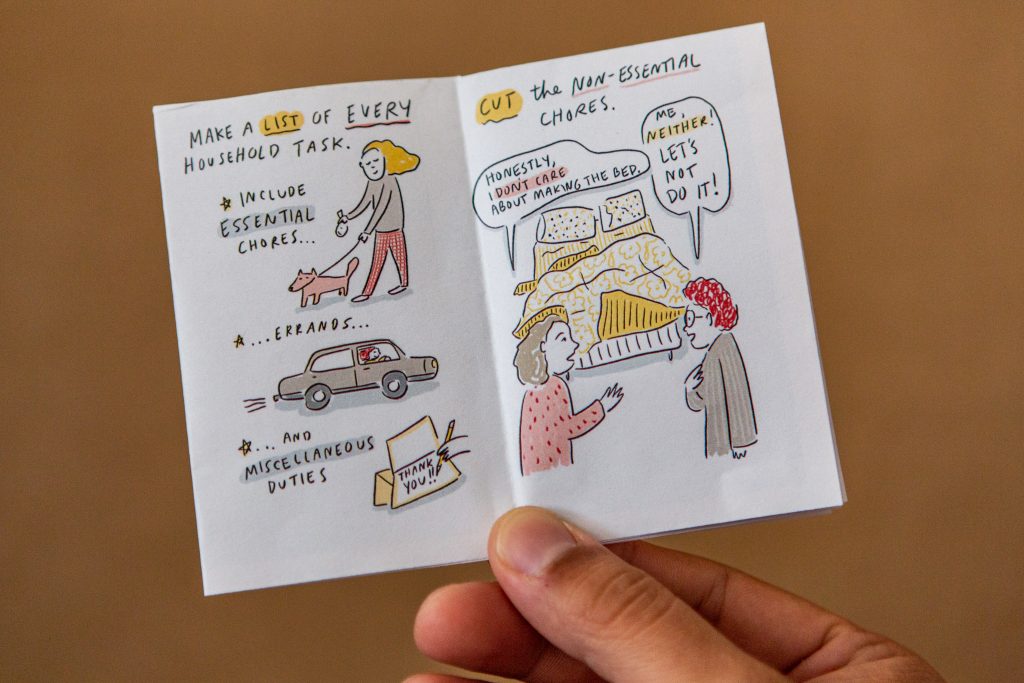 MAKE A LIST OF EVERY
HOUSEHOLD TASK.
INCLUDE
ESSENTIAL
CHORES...
...ERRANDS...
... AND
MISCELLANEOUS
DUTIES
THANK
YOU!!
CUT the NON-ESSENTIAL
CHORES.
HONESTLY,
I DON'T CARE
ABOUT MAKING THE BED.
ME,
NEITHER!
LET'S
NOT
DO IT!